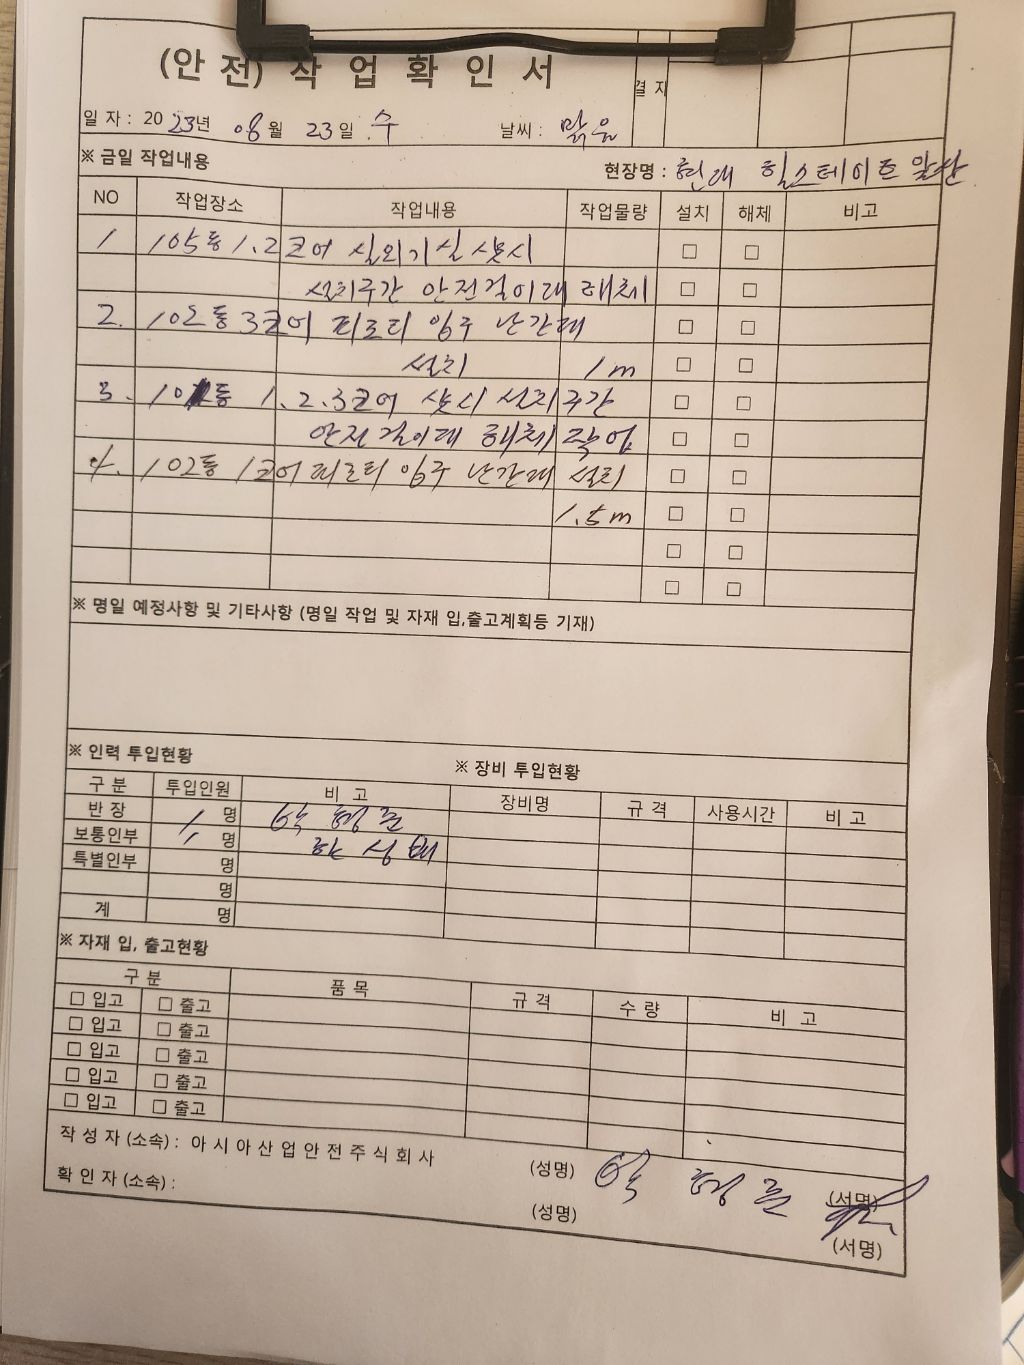 (안 전) 작 업 확 인 서
결 자
일 자 : 2023년 08월 23일 수 날씨 : 맑음
※ 금일 작업내용 현장명 : 현대 힐스테이트
NO 작업장소 작업내용 작업물량 설치 해체 비고
1 105동 1.2코어 실외기실 샷시 □ □
설치구간 안전걸이대 해체 □ □
2. 102동 3코어 피로티 입구 난간대 □ □
설치 1m □ □
3. 동 1.2.3코어 샷시 설치구간 □ □
안전걸이대 해체 작업 □ □
4. 102동 1코어 피로티 입구 난간대 설치 □ □
1.5m □ □
□ □
□ □
※ 명일 예정사항 및 기타사항 (명일 작업 및 자재 입,출고계획등 기재)
※ 인력 투입현황 ※ 장비 투입현황
구 분 투입인원 비 고 장비명 규 격 사용시간 비 고
반 장 1 명
보통인부 1 명
특별인부 명
명
계 명
※ 자재 입, 출고현황
구 분 품 목 규 격 수 량 비 고
□ 입고 □ 출고
□ 입고 □ 출고
□ 입고 □ 출고
□ 입고 □ 출고
□ 입고 □ 출고
작 성 자 (소속) : 아 시 아 산 업 안 전 주 식 회 사 (성명) (서명)
확 인 자 (소속) : (성명) (서명)